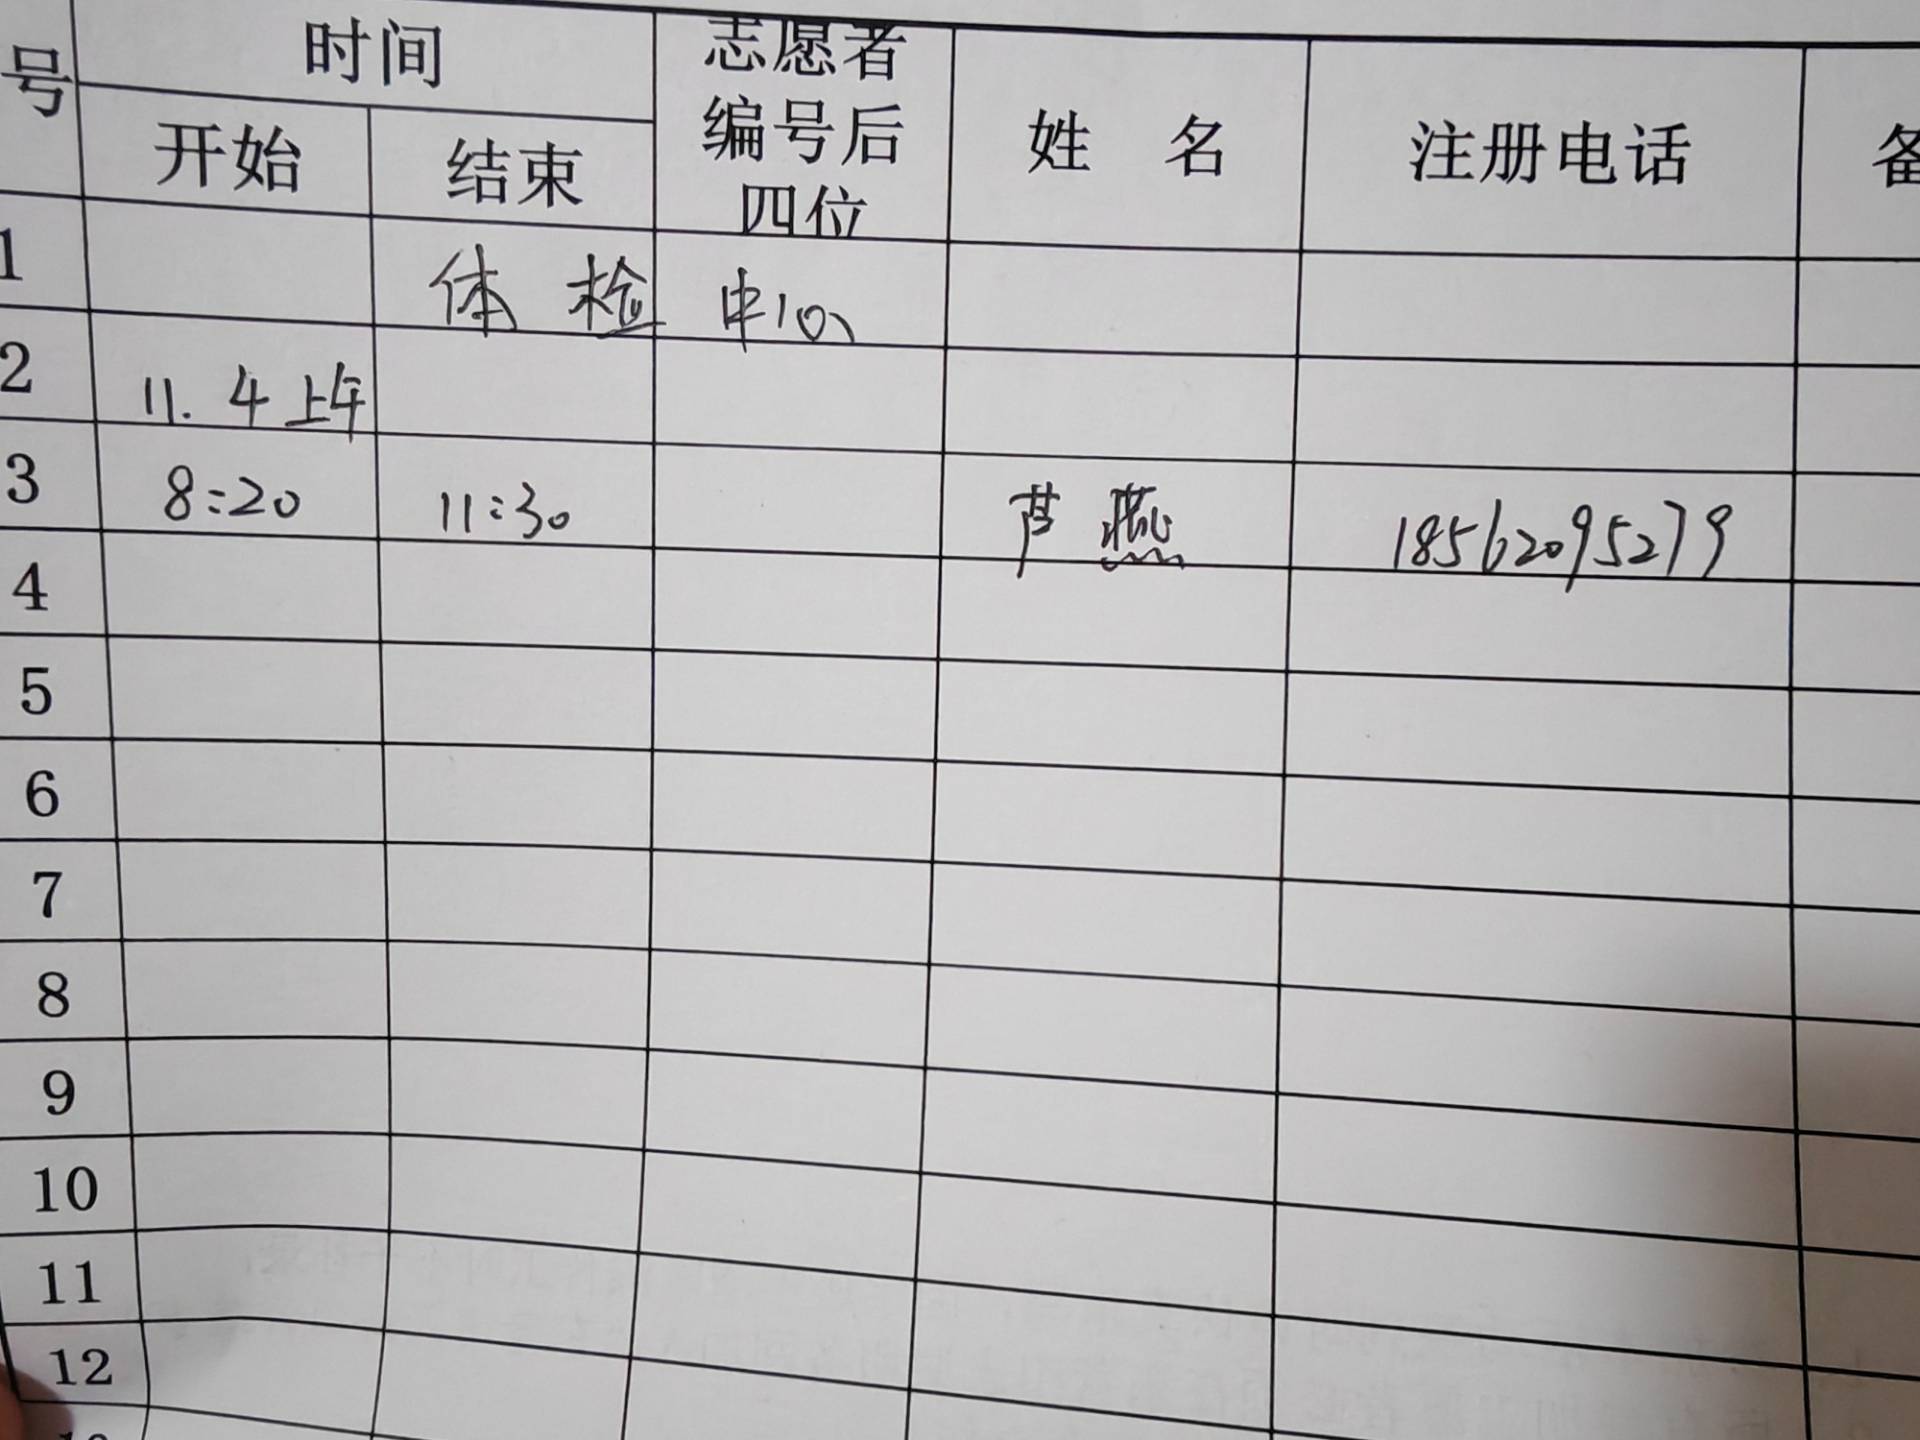 号 时间 志愿者编号后四位 姓 名 注册电话 备
开始 结束
1 体 检 中心
2 11.4上午
3 8:20 11:30 芦 燕 18562095279
4
5
6
7
8
9
10
11
12